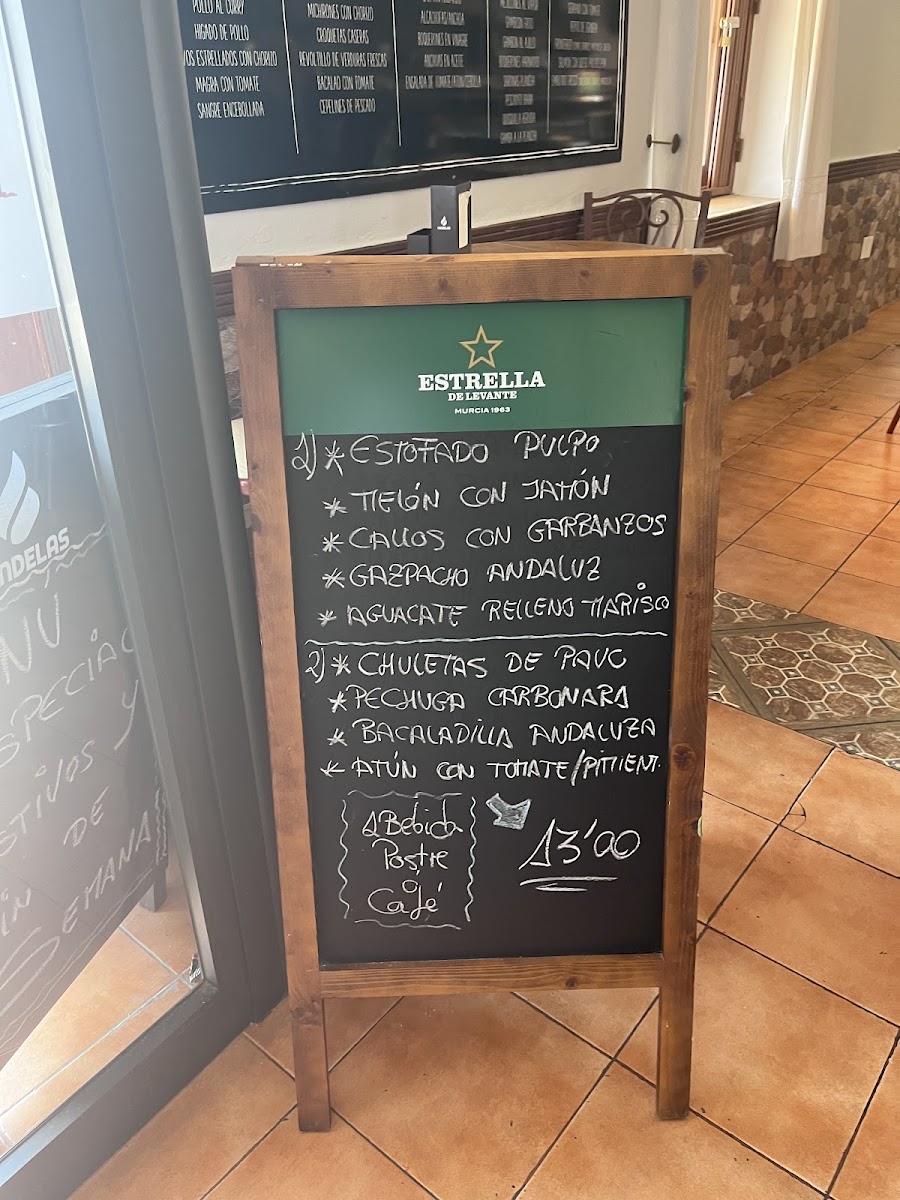 POLLO AL CURRY
HIGADO DE POLLO
OS ESTRELLADOS CON CHORIZO
MAGRA CON TOMATE
SANGRE ENCEBOLLADA
MICHRONES CON CHORIZO
CROQUETAS CASERAS
REVOLTILLO DE VERDURAS FRESCAS
BACALAO CON TOMATE
CEPELINES DE PESCADO
BOQUERONES EN VINAGRE
ANCHOAS EN ACEITE
ESTRELLA
DE LEVANTE
MURCIA 1963
1) * ESTOFADO PULPO
* MELÓN CON JAMÓN
* CALLOS CON GARBANZOS
* GAZPACHO ANDALUZ
* AGUACATE RELLENO MARISCO
2) * CHULETAS DE PAVO
* PECHUGA CARBONARA
* BACALADILLA ANDALUZA
* ATÚN CON TOMATE/PIMIENT.
1 Bebida
Postre
o
Café
13'00
NDELAS
NU
SPECIAL
TIVOS Y
IN DE
SEMANA